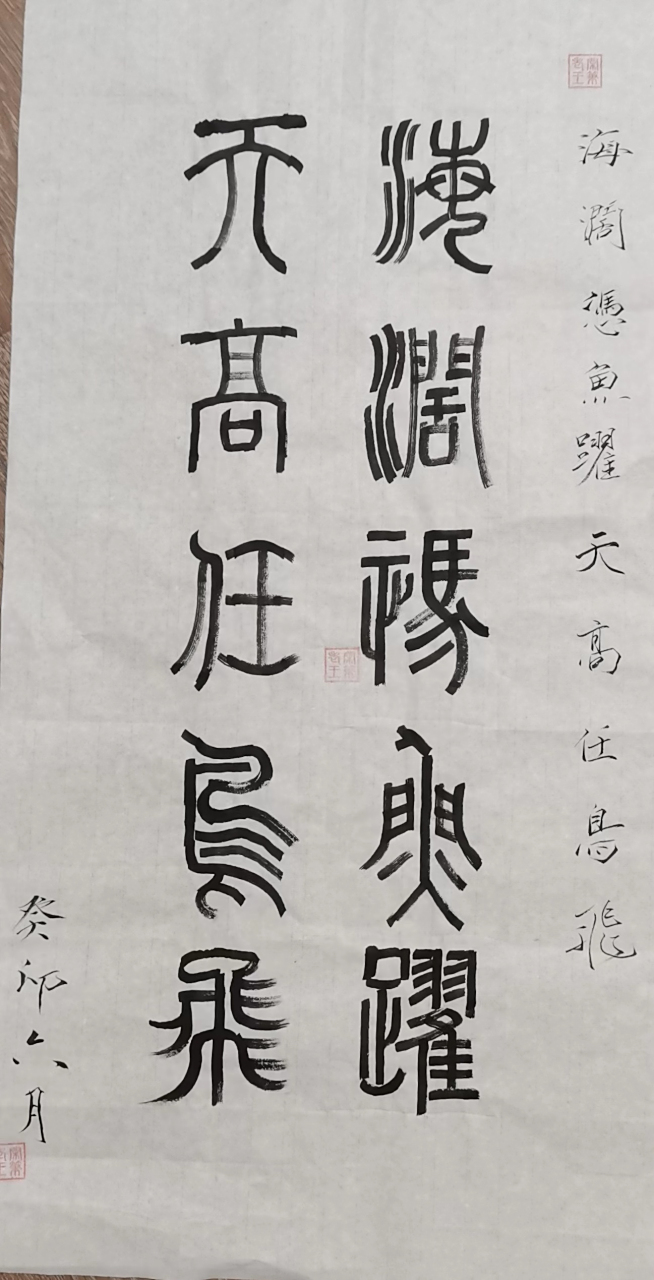 海濶憑魚躍天高任鳥飛
海濶憑魚躍
天高任鳥飛
癸卯六月